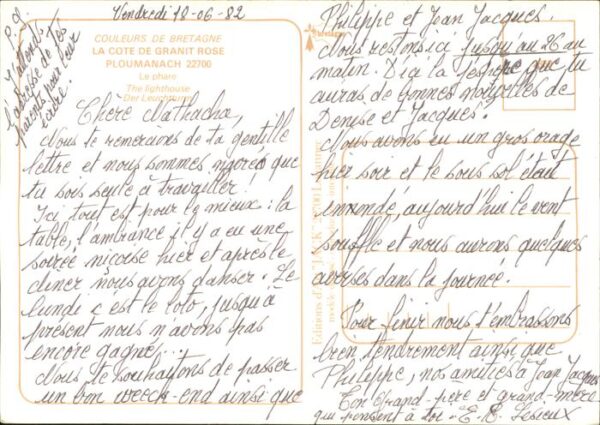 Vendredi 18-06-82
P.S.
J'attends
l'adresse de tes
parents pour leur
écrire.
COULEURS DE BRETAGNE
LA COTE DE GRANIT ROSE
PLOUMANACH 22700
Le phare
The lighthouse
Der Leuchtturm
Chère Nathacha,
Nous te remercions de ta gentille
lettre et nous sommes que
tu sois seule à travailler.
Ici tout est pour le mieux : la
table, l'ambiance il y a eu une
soirée niçoise hier et après le
diner nous avons danser. Le
lundi c'est le loto, jusqu'à
présent nous n'avons pas
encore gagnés...
Nous te souhaitons de passer
un bon week-end ainsi que
Philippe et Joan Jacques.
Nous restons ici jusqu'au 26 au
matin. D'ici là j'espère que tu
auras de bonnes nouvelles de
Denise et Jacques.
Nous avons eu un gros orage
hier soir et le sous sol était
innondé, aujourd'hui le vent
souffle et nous aurons quelques
averses dans la journée.
Pour finir nous t'embrassons
bien tendrement ainsi que
Philippe, nos amitiés à Joan Jacques
Ton Grand-père et grand-mère
qui pensent à toi - E. R. Lesieux
Editions d'art JACK